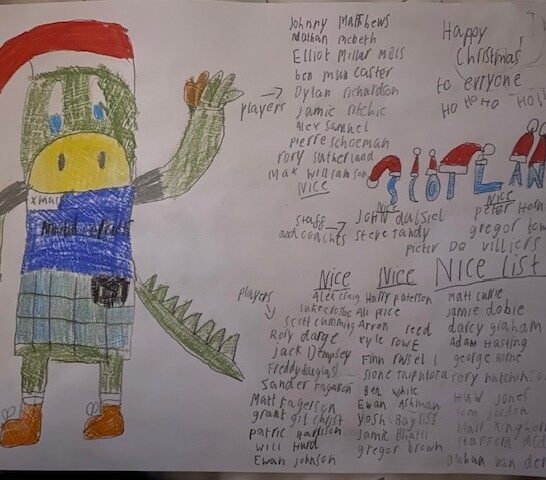 Johnny Matthews
Nathan mcbeth
Elliot Millar Mills
ben mun caster
players → Dylan richardson
Jamie ritchie
Alex samuel
Pierre schoeman
rory sutherland
Max williamson
NICE
Happy
Christmas
to erryone
HO HO HO
SCOTLAN
xmas
staff and coaches →
NICE
JOHN dalsiel
steve tandy
NICE
peter Horn
gregor tow
pieter De villiers
NICE
NICE
NICE list
players
Alex craig
luke crosbie
Scott cumming
Rory darge
Jack Dempsey
Freddy douglas
Sander fagerson
Matt fagerson
grant gilchrist
patric harrison
will Hurd
Ewan Johnson
Harry paterson
Ali price
Arron reed
kyle rowe
Finn
Ben white
Ewan Ashman
Josh Bayliss
Jamie Bhatti
gregor brown
Matt currie
jamie dobie
darcy graham
Adam Hasting
george Horne
rory hutchinson
Huw Jones
tom jordan
blair kinghorn
Duhan van der